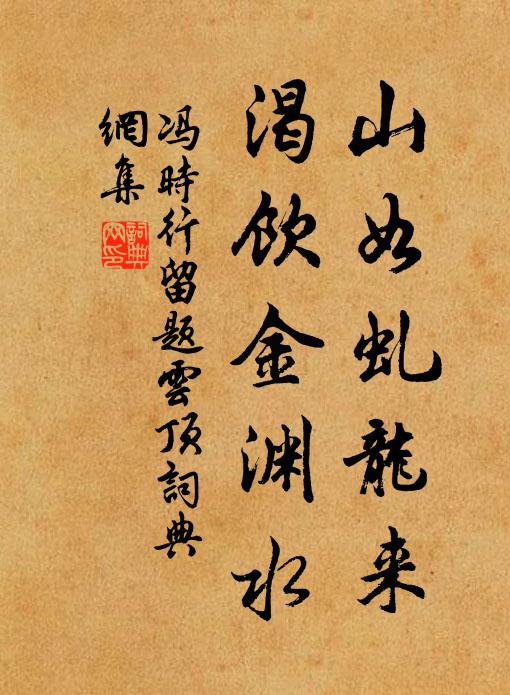 山如虬龍来
渴飲金渊水
冯時行留题雲顶詞典
網集
詞典網印